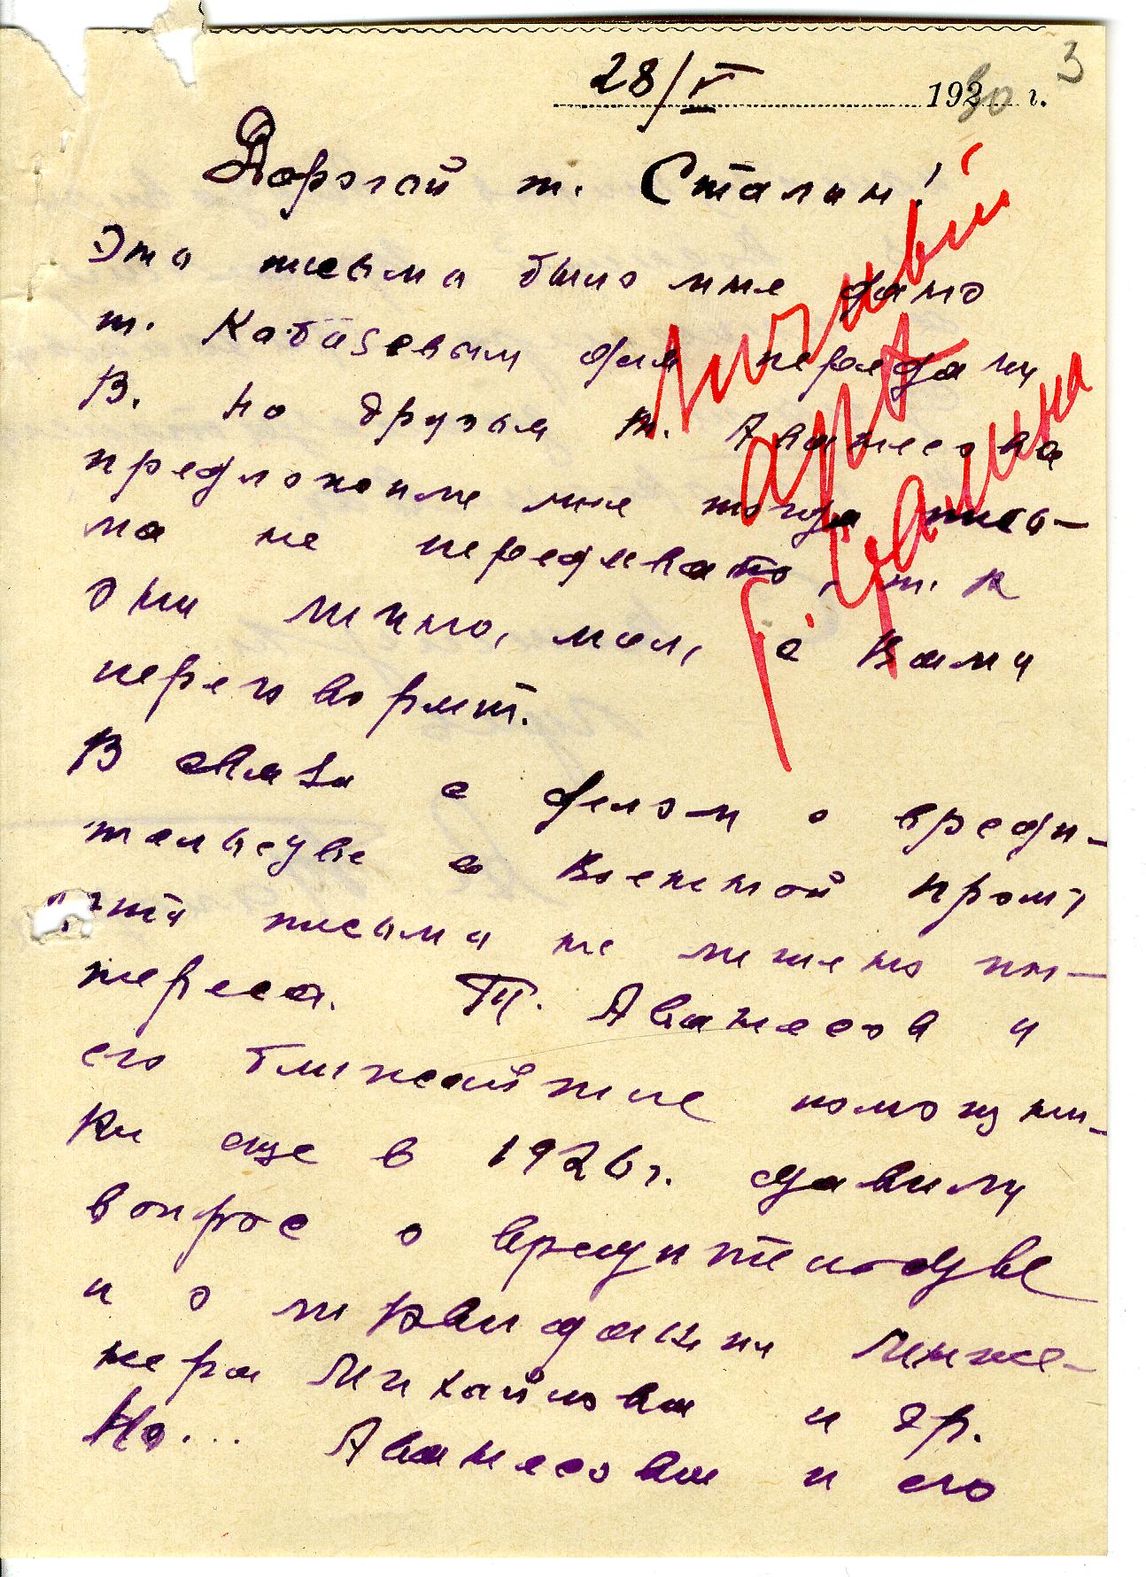 3
28/V 1930 г.
Дорогой т. Сталин!
Эта письма было мне дано
т. Кабашевым для передачи
В. но друзья т. Аванесова
предложили мне тогда пись-
ма не передавать, т. к
они лично, мол, с Вами
переговорит.
В связи с делом о вреди-
тельстве в Военной пром,
эти письма не лишено ин-
тереса. Тт. Аванесов и
его ближайшие помощни-
ки еще в 1926 г.
вопрос о вредительстве
и о ликвидации Инже-
нера Михайлова и др.
Но... Аванесова и его
Личный
арх
т. Сталина